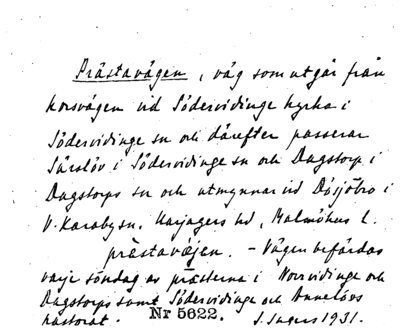 Prästavägen, väg som utgår från
korsvägen vid Södervidinge kyrka i
Södervidinge sn och därefter passerar
Särslöv i Södervidinge sn och Dagstorp i
Dagstorps sn och utmynnar vid Dösjöbro i
V. Karaby sn. Harjagers hd, Malmöhus l.
prästavájen. – Vägen befärdas
varje söndag av prästerna i Norrvidinge och
Dagstorps samt Södervidinge och Annelövs
pastorat. Nr 5622. S. Ingers 1931.